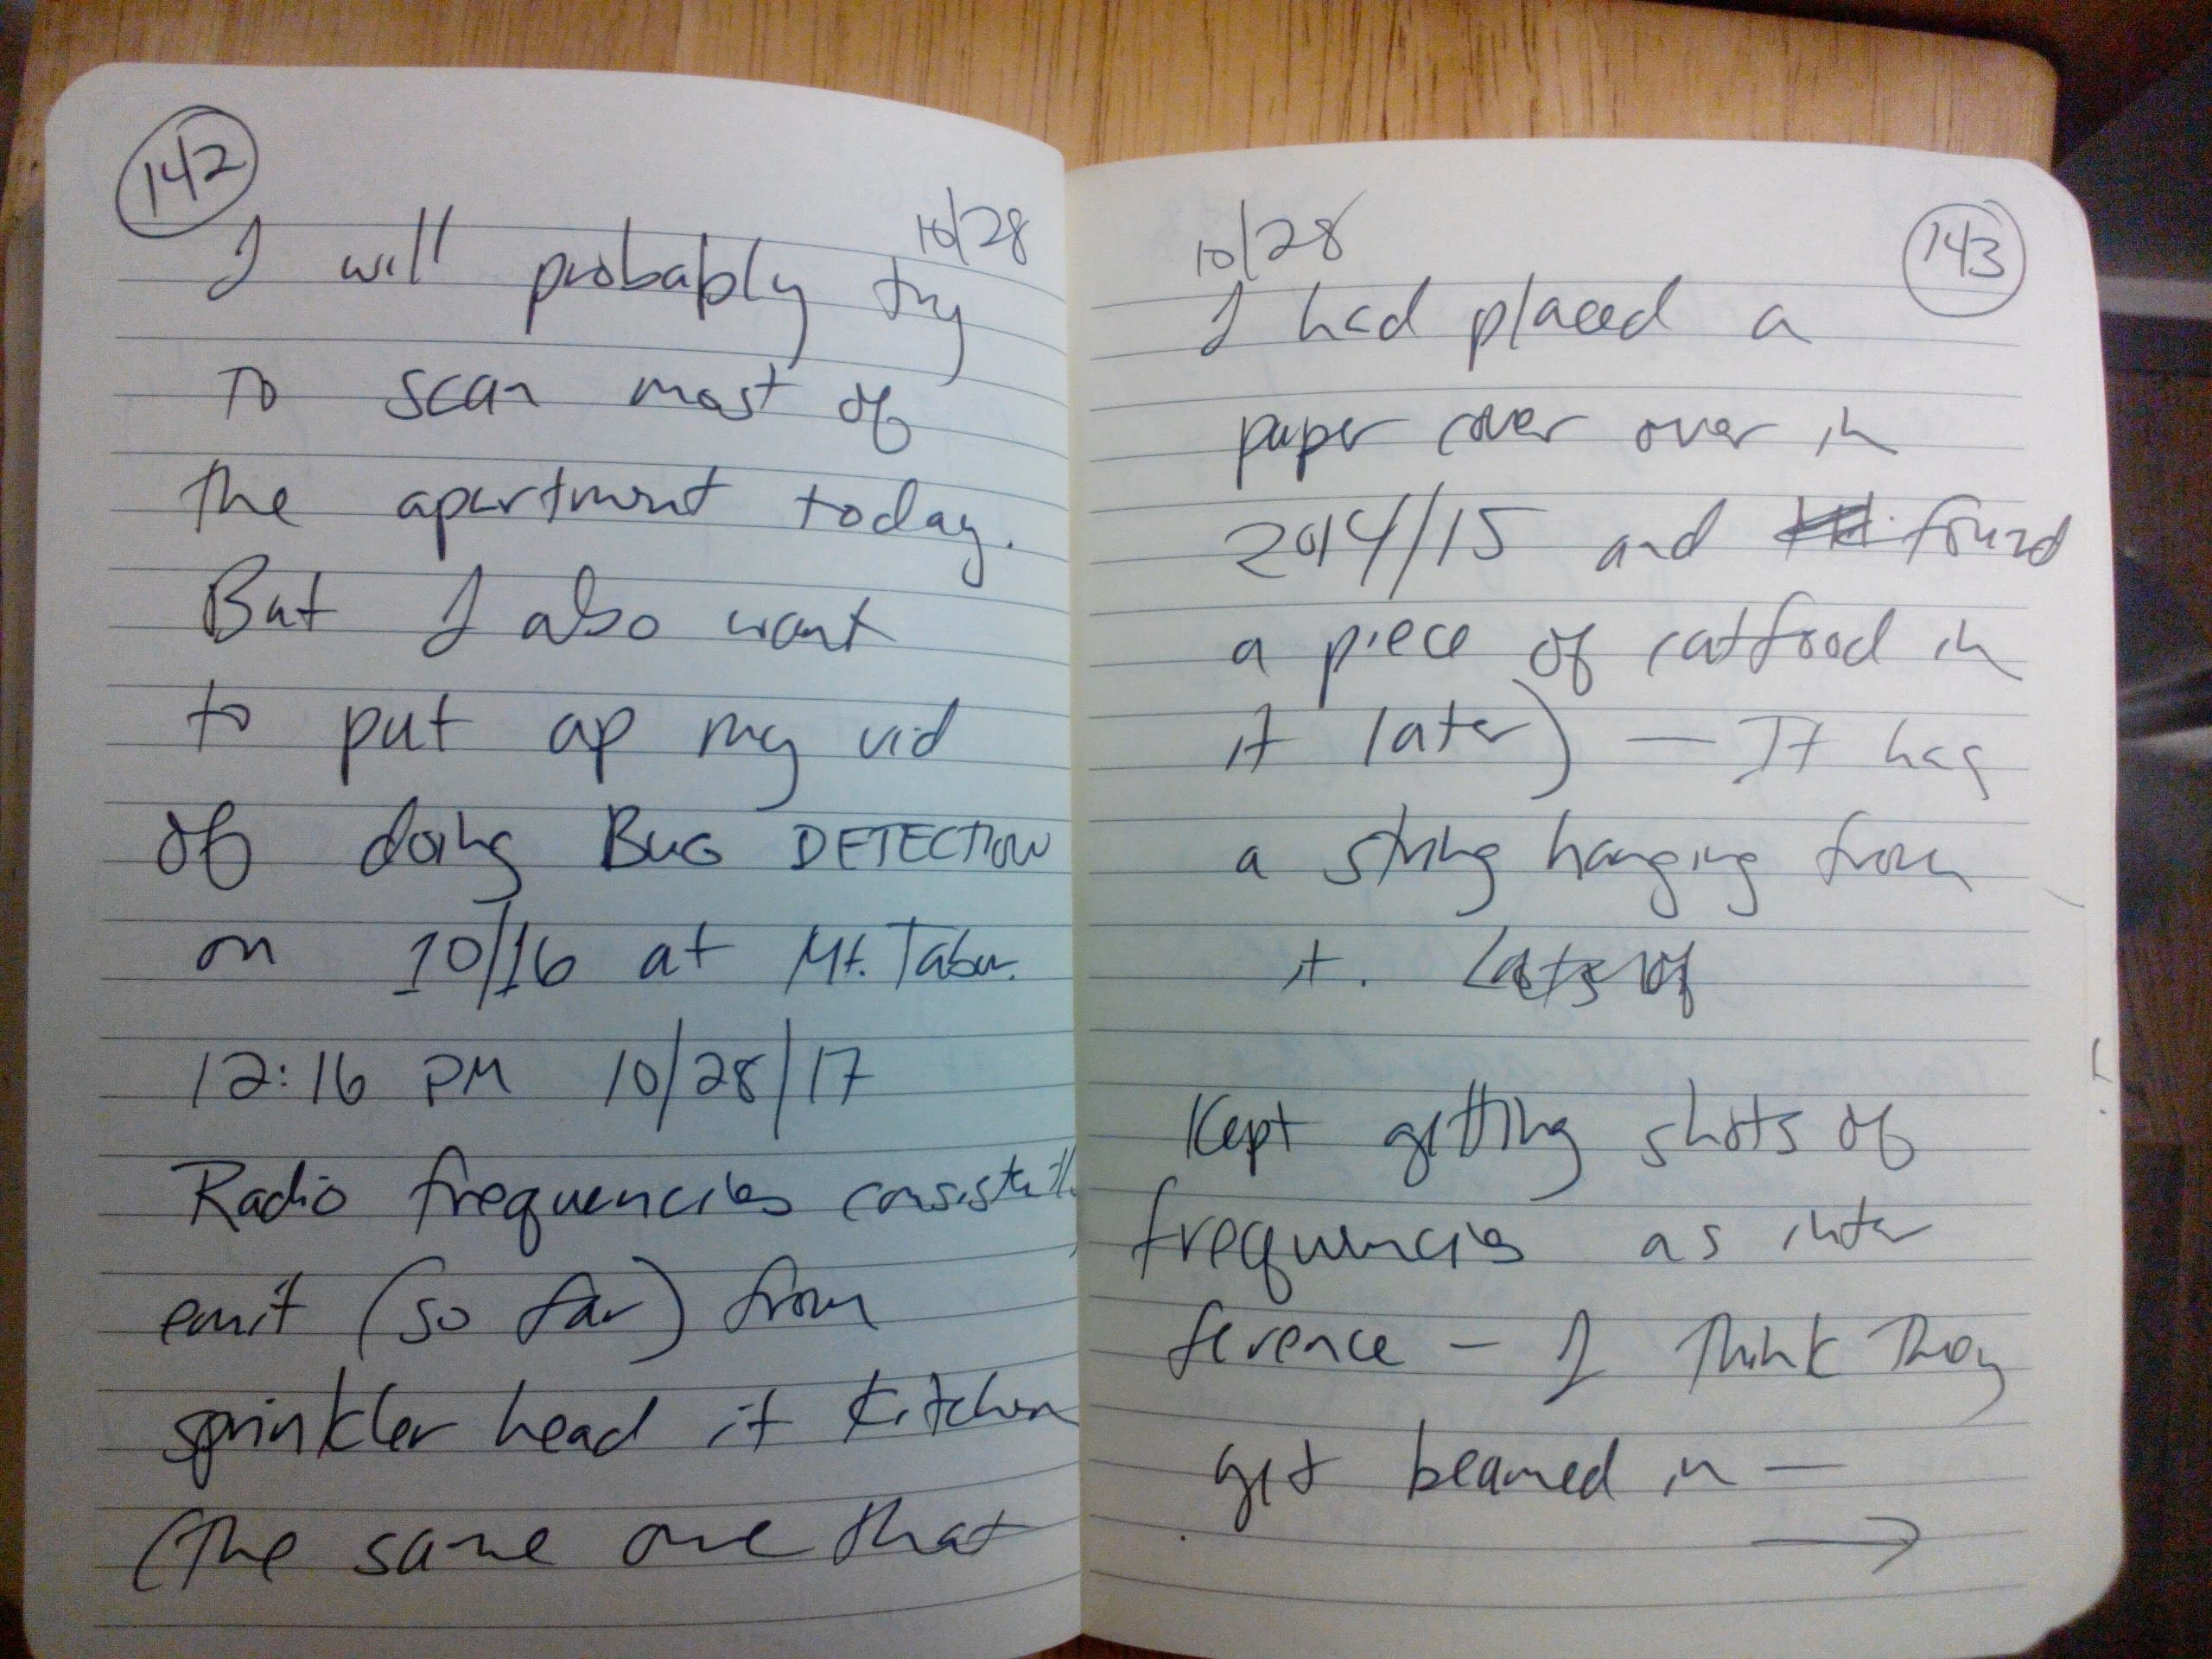 142
10/28
I will probably try
To scan most of
the apartment today.
But I also want
to put up my vid
of doing BUG DETECTION
on 10/16 at Mt. Tabor.
12:16 PM 10/28/17
Radio frequencies consistently
emit (so far) from
sprinkler head it kitchen
(The same one that
143
10/28
I had placed a
paper cover over in
2014/15 and found
a piece of catfood in
it later) — It has
a string hanging from
it. Lots of
Kept getting shots of
frequencies as inter
ference - I Think They
get beamed in —
→